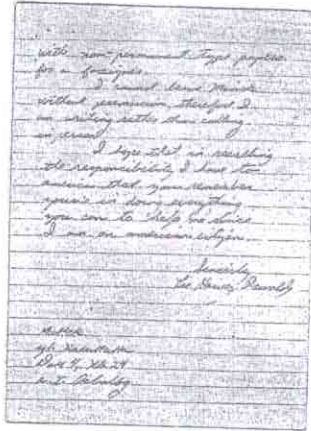 with non-permanent type papers
for a foreigner.
I cannot leave Minsk
without permission, therefore I
am writing rather than calling
in person.
I hope that in recalling
the responsibility I have to
america that you remember
yours in doing everything
you can to help me since
I am an american citizen.
Sincerely
Lee Harvey Oswald
Minsk